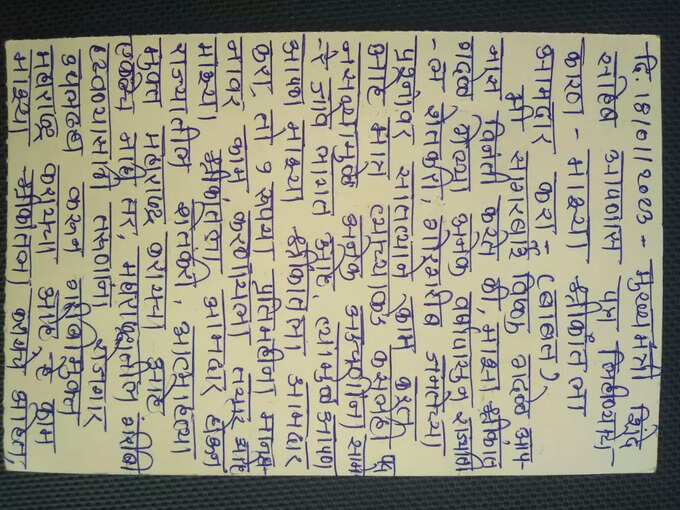 दि. 18/01/2023 - मुख्यमंत्री शिंदे
साहेब आपणास पत्र लिहीण्याचे-
कारण - माझ्या श्रीकांतला
आमदार करा- (बाबत)
मी रामराव विठ्ठल वाढवे आप-
णास विनंती करतो की, माझा श्रीकांत
वाढवे गेल्या अनेक वर्षापासून राज्याती
-ल शेतकरी, गोरगरीब जनतेच्या
प्रश्नांवर सातत्याने काम करतो
आहे मात्र त्याच्याकडे कसलेही पद
नसल्यामुळे अनेक अडचणींना साम-
-रे जावे लागत आहे, त्यामुळे आपण
आपण माझ्या श्रीकांतला आमदार
करा, तो १ रुपया प्रतिमहिना मानधन-
नावर काम करण्यासाठी तयार आहे
माझ्या श्रीकांतला आमदार होऊन
राज्यातील शेतकरी, आत्महत्या
मुक्त महाराष्ट्र करायचा आहे
एवढेच नाही तर, महाराष्ट्रातील गरीब
होतकरूंसाठी तरुणांना रोजगार
उपलब्ध करून गरीबीमुक्त
महाराष्ट्र करायचा आहे, हे काम
माझ्या श्रीकांतला करायचे आहेत,